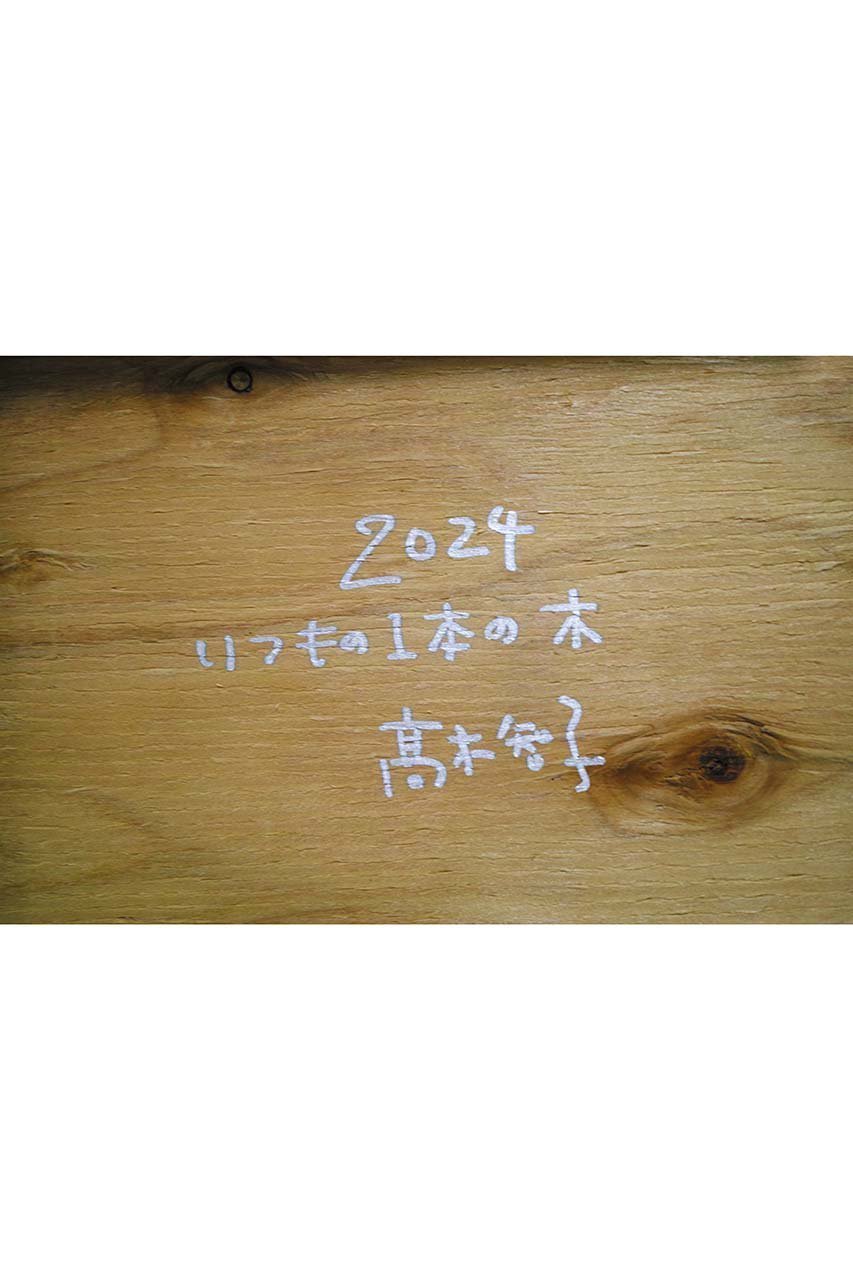 2024
いつもの1本の木
高木智子